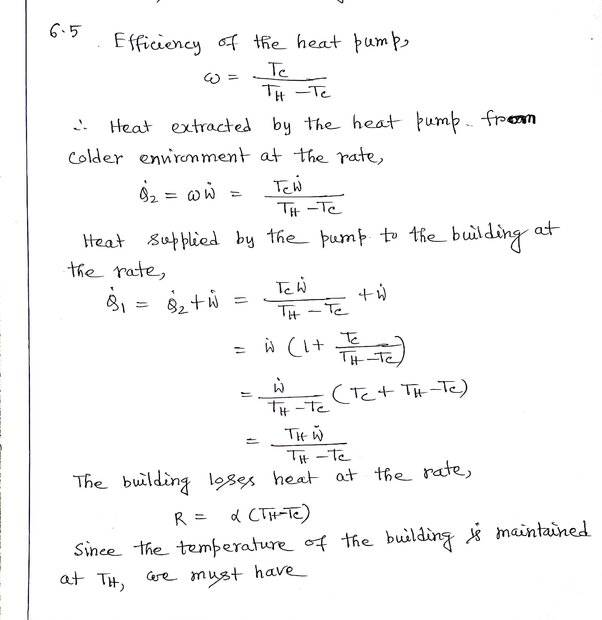 6.5 Efficiency of the heat pump,
ω = Tc / (TH − Tc)
∴ Heat extracted by the heat pump from
colder environment at the rate,
Q̇2 = ωẆ = TcẆ / (TH − Tc)
Heat supplied by the pump to the building at
the rate,
Q̇1 = Q̇2 + Ẇ = TcẆ / (TH − Tc) + Ẇ
= Ẇ (1 + Tc / (TH − Tc))
= Ẇ / (TH − Tc) (Tc + TH − Tc)
= THẆ / (TH − Tc)
The building loses heat at the rate,
R = α (TH − Tc)
Since the temperature of the building is maintained
at TH, we must have